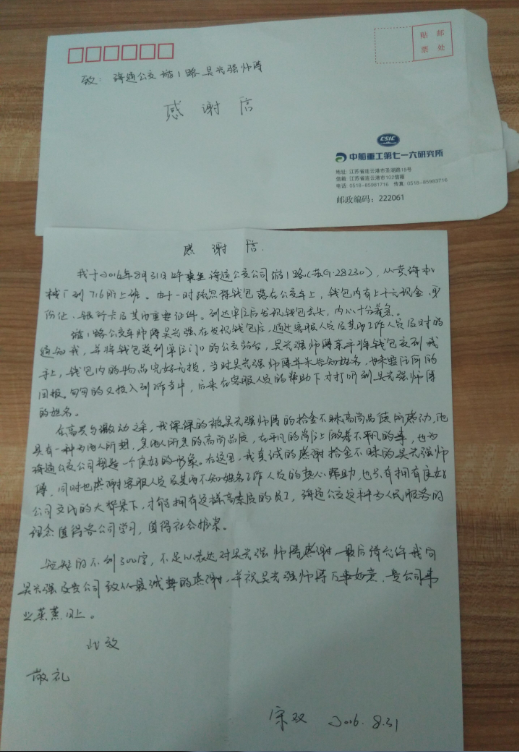 贴 邮
票 处
致：海通公交 游1路 吴兴强师傅
感谢信
CSIC
中船重工第七一六研究所
邮政编码：222061
感谢信
我于2016年8月31日 乘坐 海通公交公司游1路(苏G-28230)，从
到716所上班。由于一时疏忽将钱包落在公交车上，钱包内有上千元现金、身
份证、银行卡及其他重要证件。到达单位后发现钱包丢失，内心十分着急。
游1路公交车师傅吴兴强在发现钱包后，通过客服人员及其他工作人员及时的
通知我，并将钱包送到单位门口的公交站台，吴兴强师傅亲手将钱包交到我
手上，钱包内的物品完好无损，当时吴兴强师傅并未告知姓名，也未要任何的
回报。匆匆的又投入到工作当中，后来在客服人员的帮助下才打听到吴兴强师傅
的姓名。
在高兴与激动之余，我深深的被吴兴强师傅的拾金不昧高尚品质所感动，他
具有一种为他人所想，急他人所急的高尚品质，在平凡的岗位上做着不平凡的事，也为
海通公交公司树立一个良好的形象。在这里，我真诚的感谢拾金不昧的吴兴强师
傅，同时也感谢客服人员及其他不知姓名工作人员的热心帮助，也只有拥有良好
公司文化的大背景下，才能拥有这样高素质的员工，海通公交这种为人民服务的
理念值得各公司学习，值得社会推崇。
短短的不到300字，不足以表达对吴兴强师傅感谢。最后请允许我向
吴兴强及贵公司致以最诚挚的感谢，祝吴兴强师傅万事如意，贵公司事
业蒸蒸日上。
此致
敬礼
宋双 2016.8.31